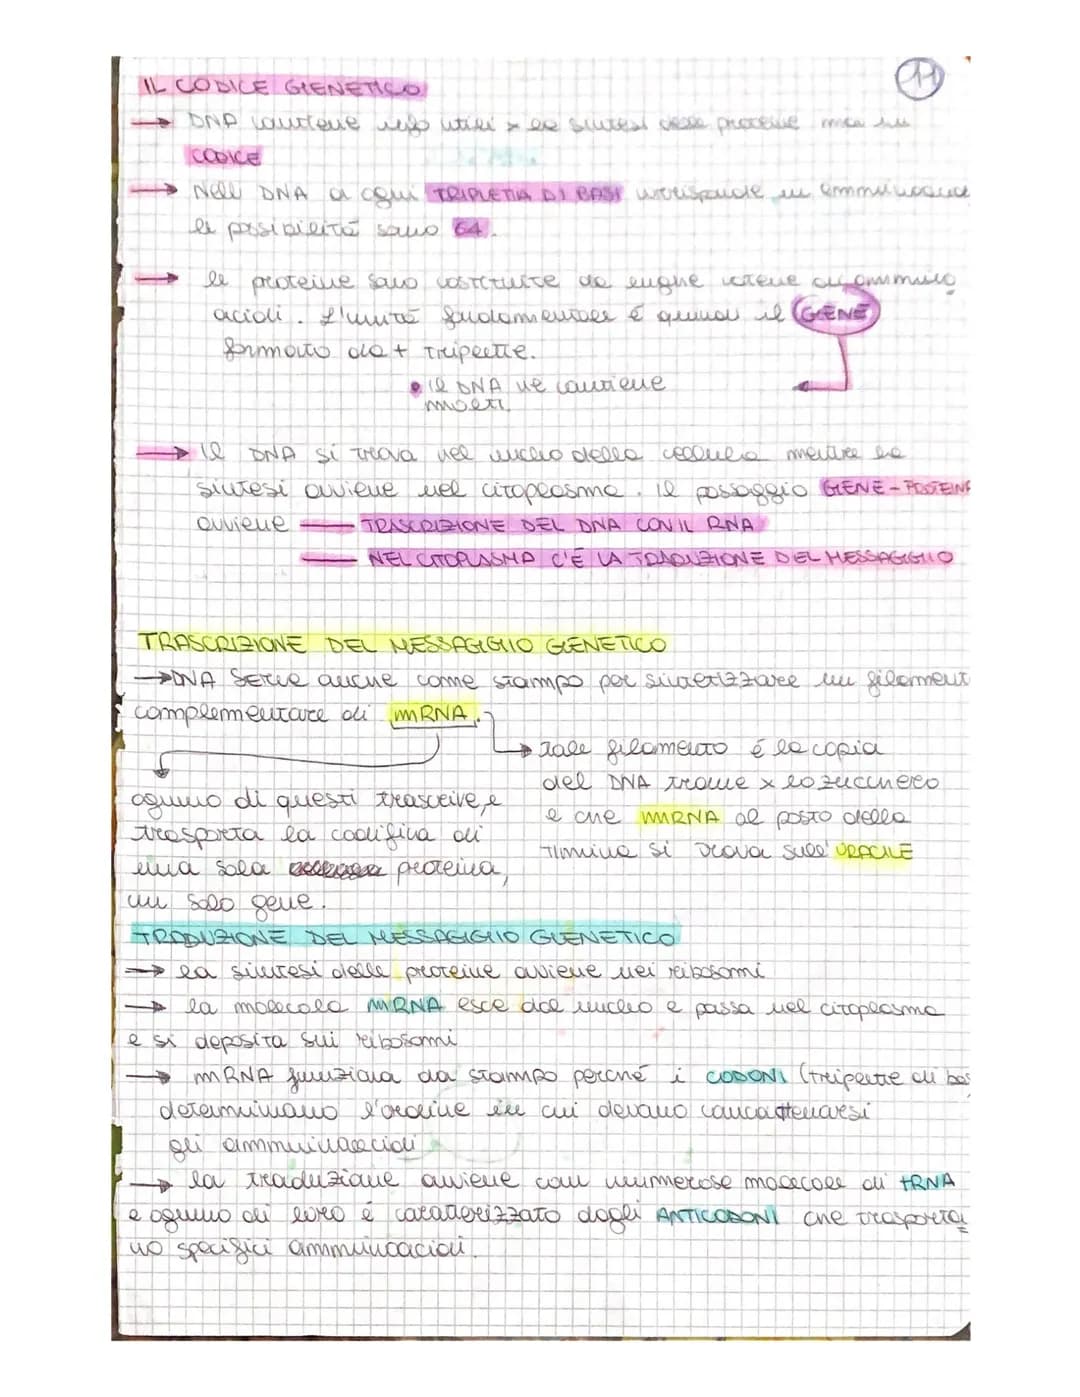 11
IL CODICE GENETICO
→ DNA contiene info utili x la sintesi delle proteine ma in
CODICE
→ Nell DNA a ogni TRIPLETTA DI BASI corrisponde un amminoacido
le possibilità sono 64.
→ le proteine sono costituite da lunghe catene di ammino
acidi. L'unità fondamentale é quindi il GENE
formato da + triplette.
• il DNA ne contiene
molti.
→ il DNA si trova nel nucleo della cellula mentre la
sintesi avviene nel citoplasma. Il passaggio GENE-PROTEINA
avviene — TRASCRIZIONE DEL DNA CON IL RNA
— NEL CITOPLASMA C'É LA TRADUZIONE DEL MESSAGGIO
TRASCRIZIONE DEL MESSAGGIO GENETICO
→ DNA serve anche come stampo per sintetizzare un filament
complementare di mRNA.
→ Tale filamento é la copia
del DNA tranne x lo zucchero
e che mRNA al posto della
Timina si trova sull' URACILE
ognuno di questi trascrive, e
trasporta la codifica di
una sola proteina,
un solo gene.
TRADUZIONE DEL MESSAGGIO GENETICO
→ la sintesi delle proteine avviene nei ribosomi
→ la molecola mRNA esce dal nucleo e passa nel citoplasma
e si deposita sui ribosomi
→ mRNA funziona da stampo perché i CODONI (triplette di bas
determinano l'ordine in cui devano concattenarsi
gli amminoacidi
→ la traduzione avviene con numerose molecole di tRNA
e ognuno di loro é caratterizzato dagli ANTICODONI che trasporta
no specifici amminoacidi.